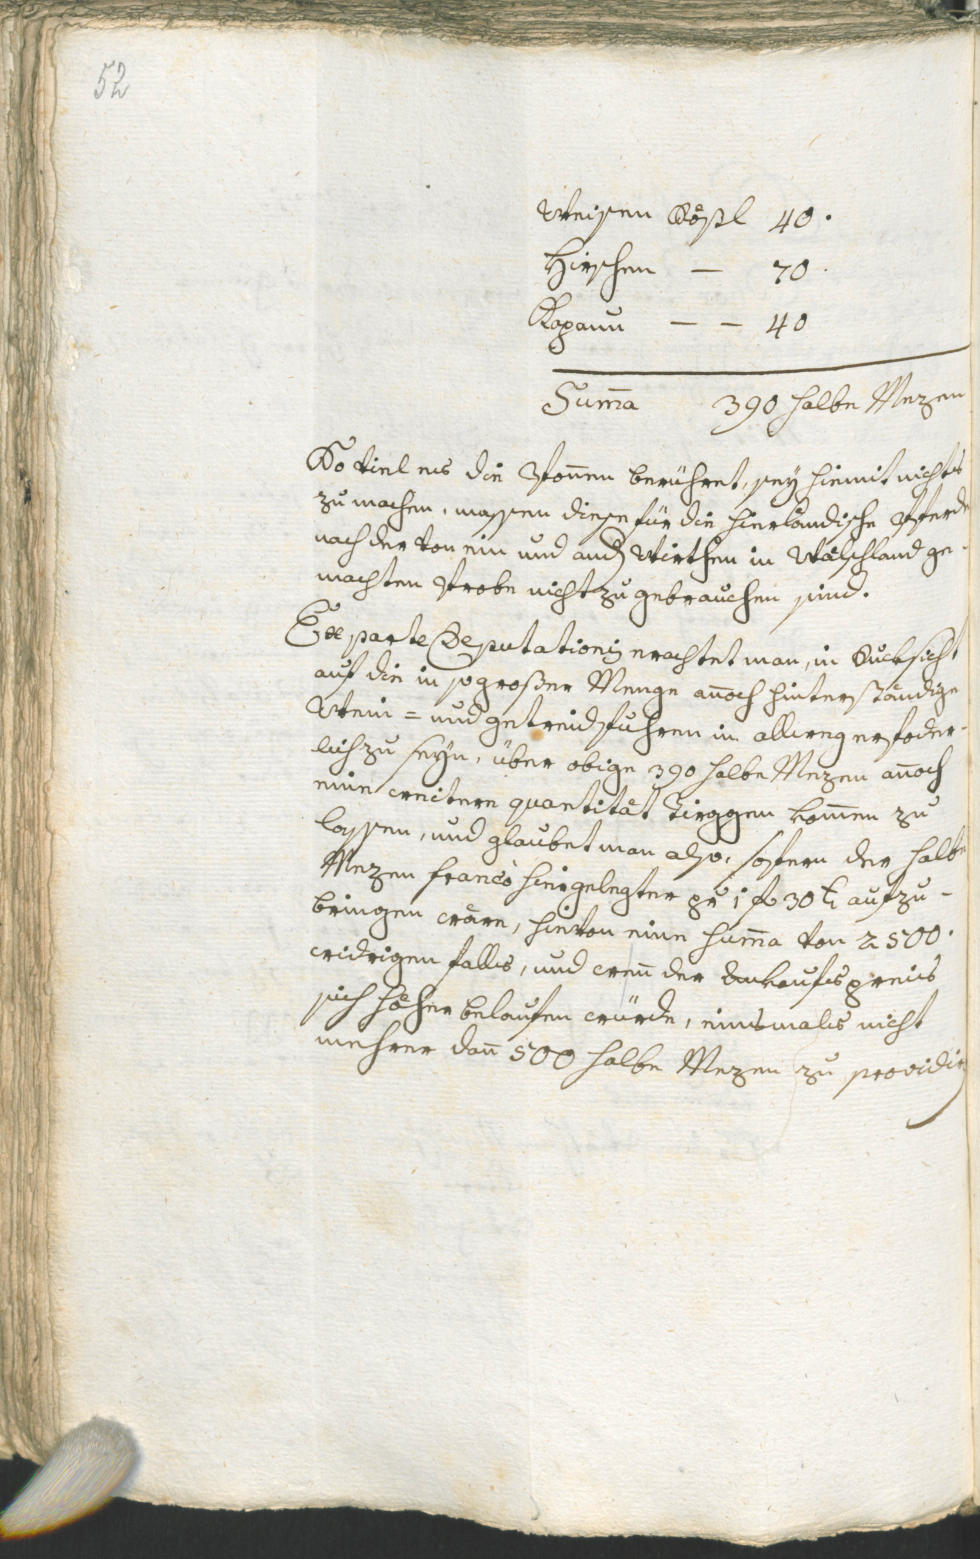 52
Weisen Rößl 40.
Hirschen — 70.
Kapaun — — 40
Summa 390 halbe Mezen
So viel es die Ponnen berühret, sey hiemit nichts
zu machen, massen diese für die hierländische Pferde
nach der von ein und andern Wirthen in Wälschland ge-
machten Probe nicht zu gebrauchen sind.
Ex parte Deputationis erachtet man, in Rucksicht
auf die in so großer Menge annoch hinterständige
Wein= und getreidfuhren in allweg erfoder-
lich zu seyn, über obige 390 halbe Mezen annoch
eine weitere quantität Tirggen kommen zu
lassen, und glaubet man also, sofern der halbe
Mezen francò hiergelegter pr 1 f 30 k aufzu-
bringen wäre, hievon eine Summa von 2500.
widrigen falls, und wenn der Ankaufspreis
sich höher belaufen würde, einsmals nicht
mehrer dann 500 halbe Mezen zu providiren